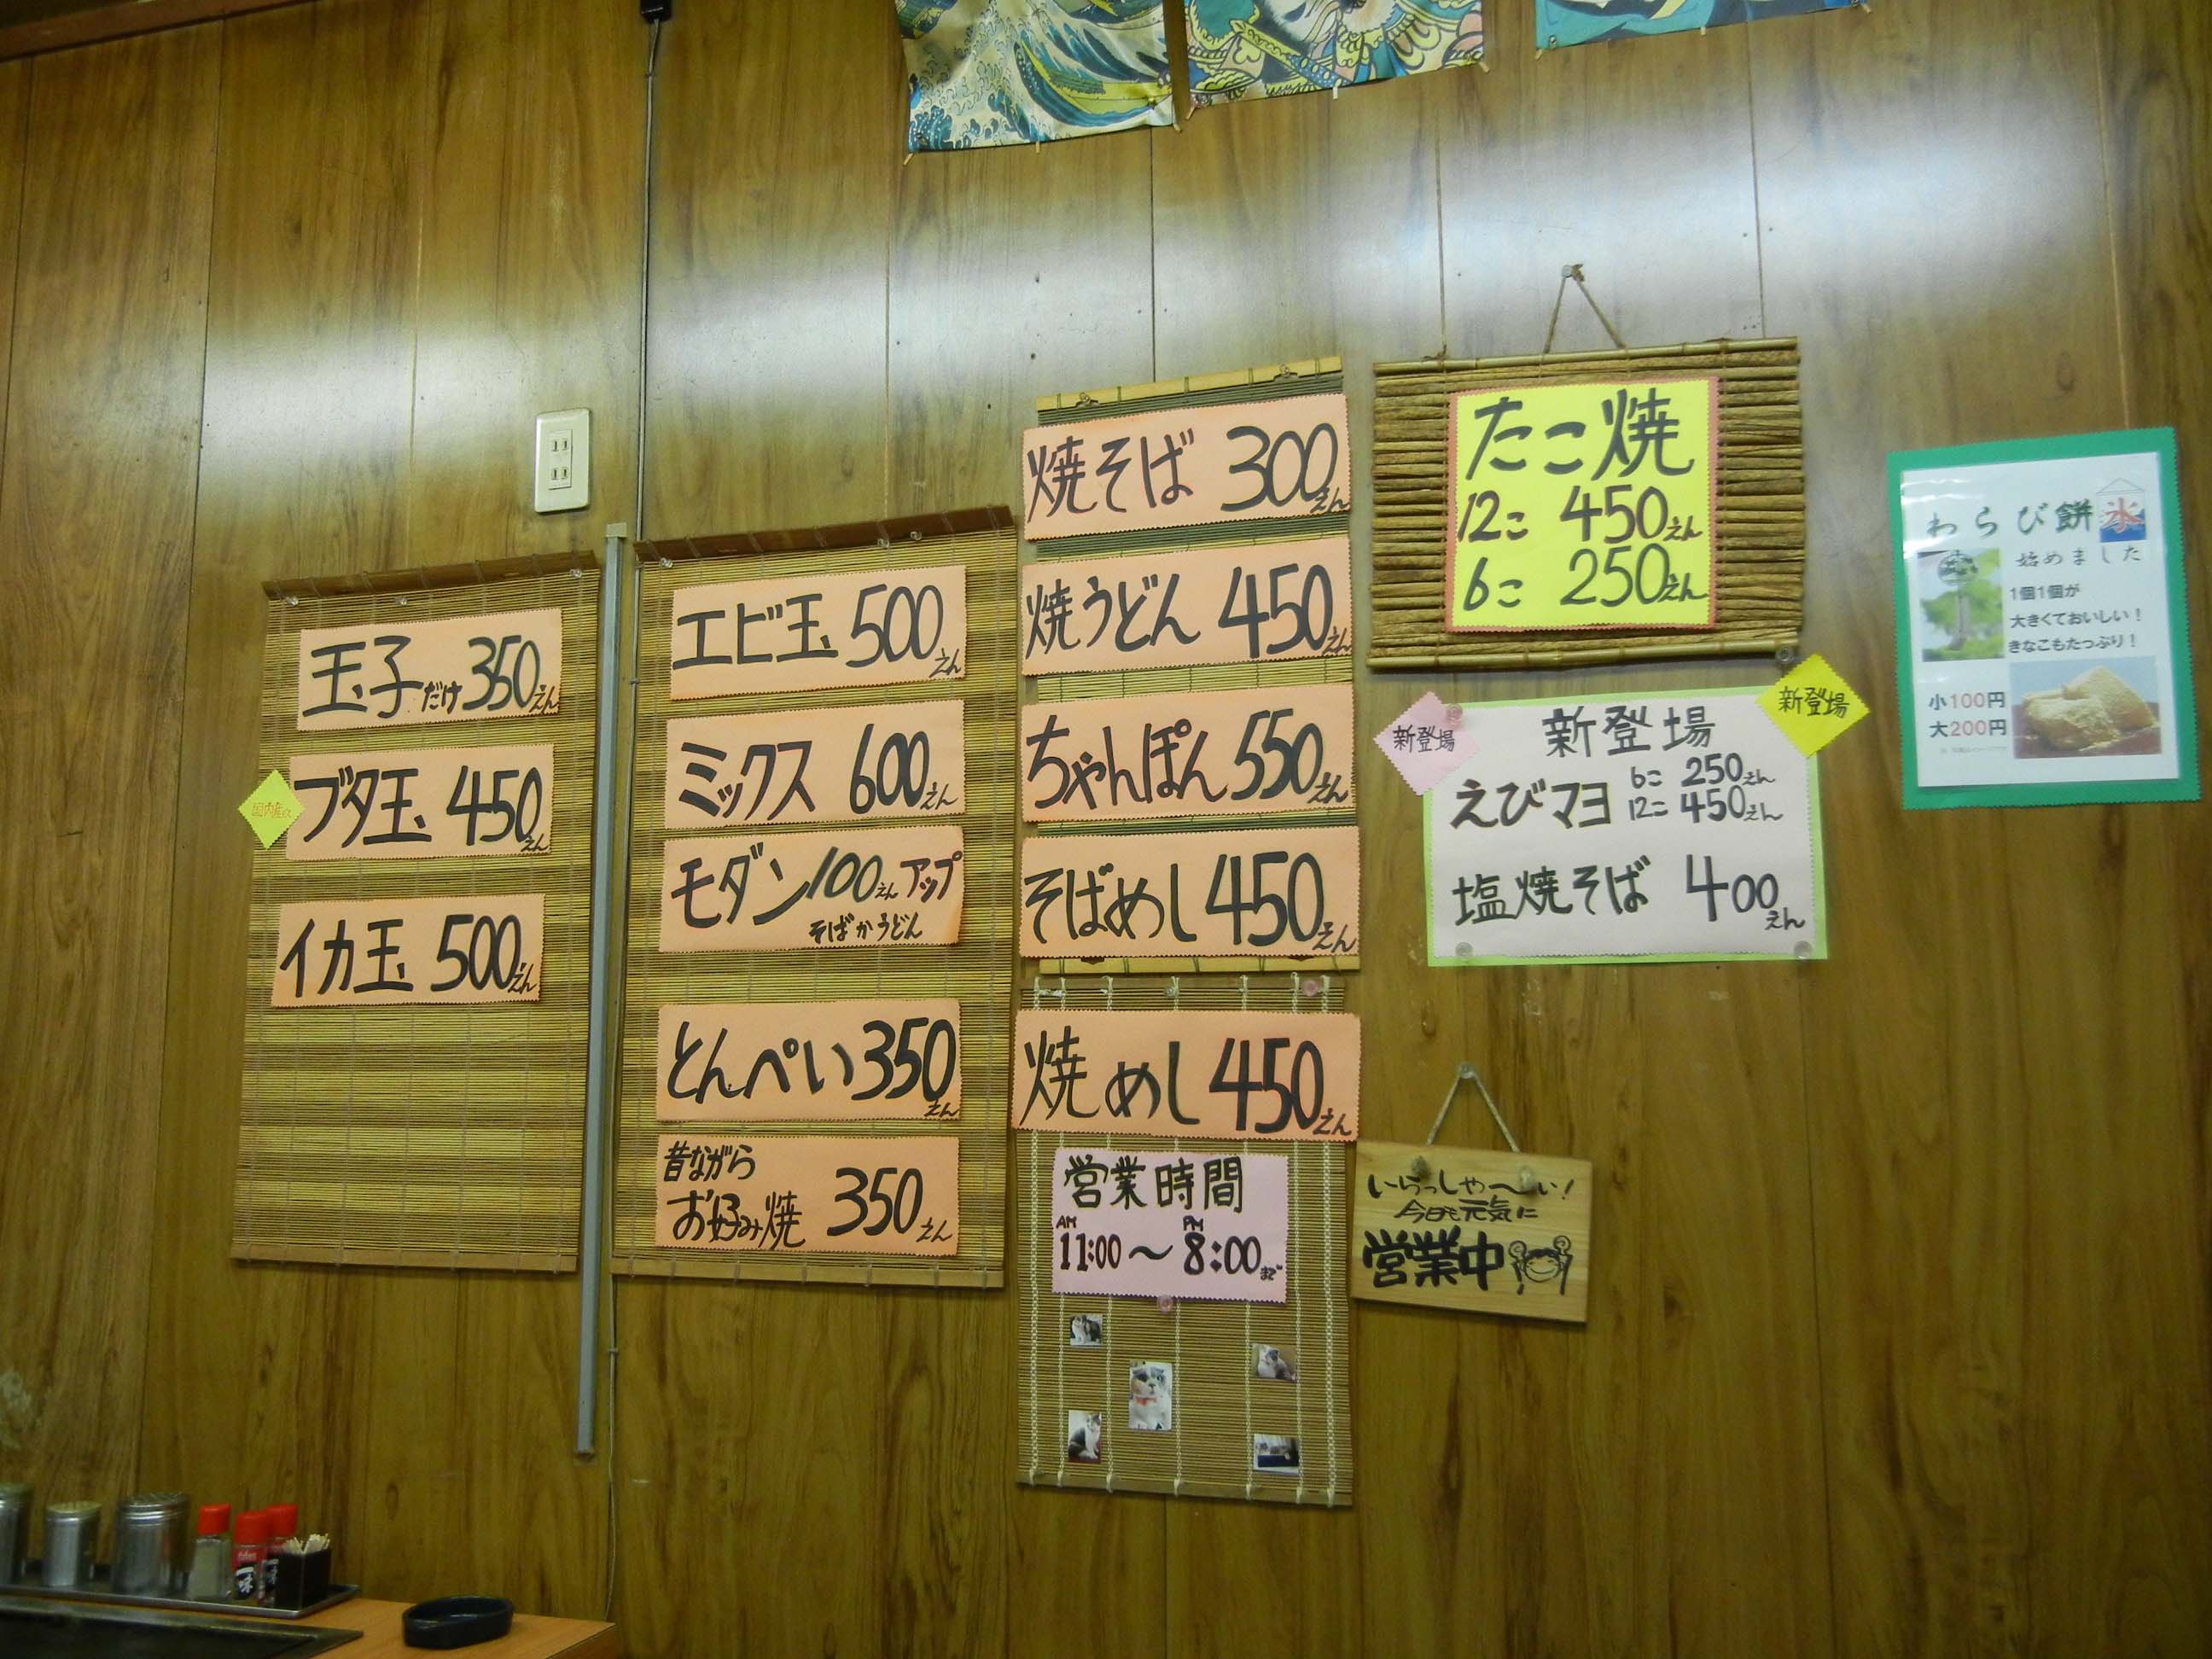 玉子だけ350えん
国内産
ブタ玉 450えん
イカ玉 500えん
エビ玉 500えん
ミックス 600えん
モダン100えんアップ
そばかうどん
とんぺい350えん
昔ながら
お好み焼 350えん
焼そば 300えん
焼うどん 450えん
ちゃんぽん 550えん
そばめし 450えん
焼めし 450えん
営業時間
AM PM
11:00〜8:00まで
たこ焼
12こ 450えん
6こ 250えん
新登場
新登場
新登場
えびマヨ 6こ 250えん
12こ 450えん
塩焼そば 400えん
いらっしゃ〜い!
今日も元気に
営業中
わらび餅 氷
始めました
1個1個が
大きくておいしい!
きなこもたっぷり!
小100円
大200円
一味